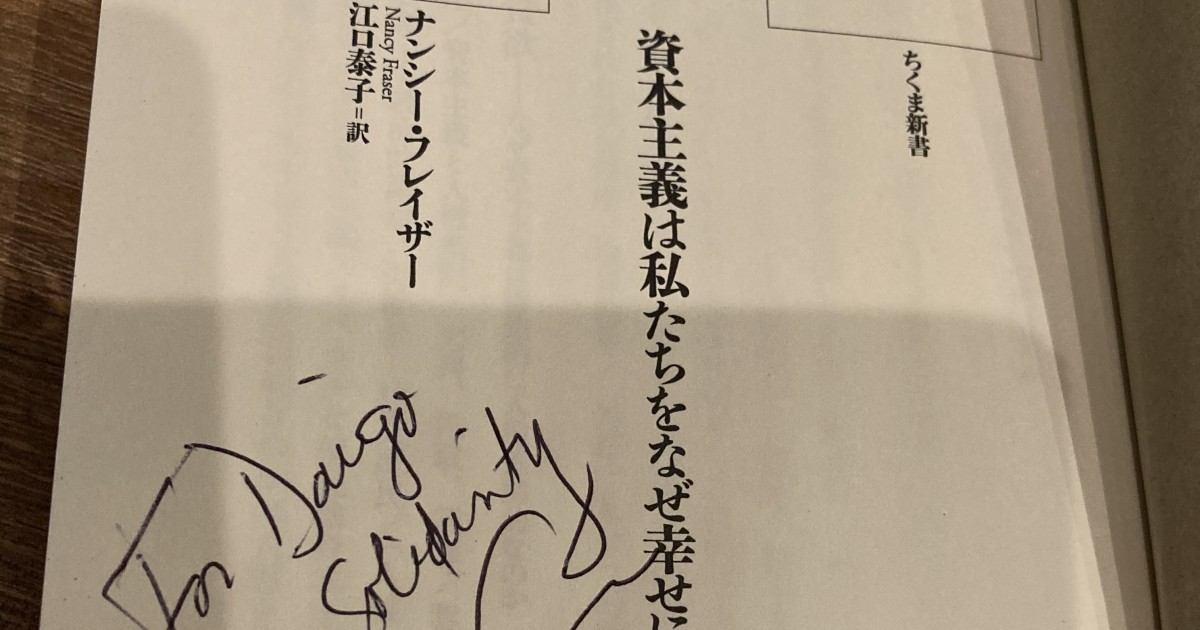 ちくま新書
資本主義は私たちをなぜ幸せに
ナンシー・フレイザー
Nancy Fraser
江口泰子=訳
For Daigo
Solidarity